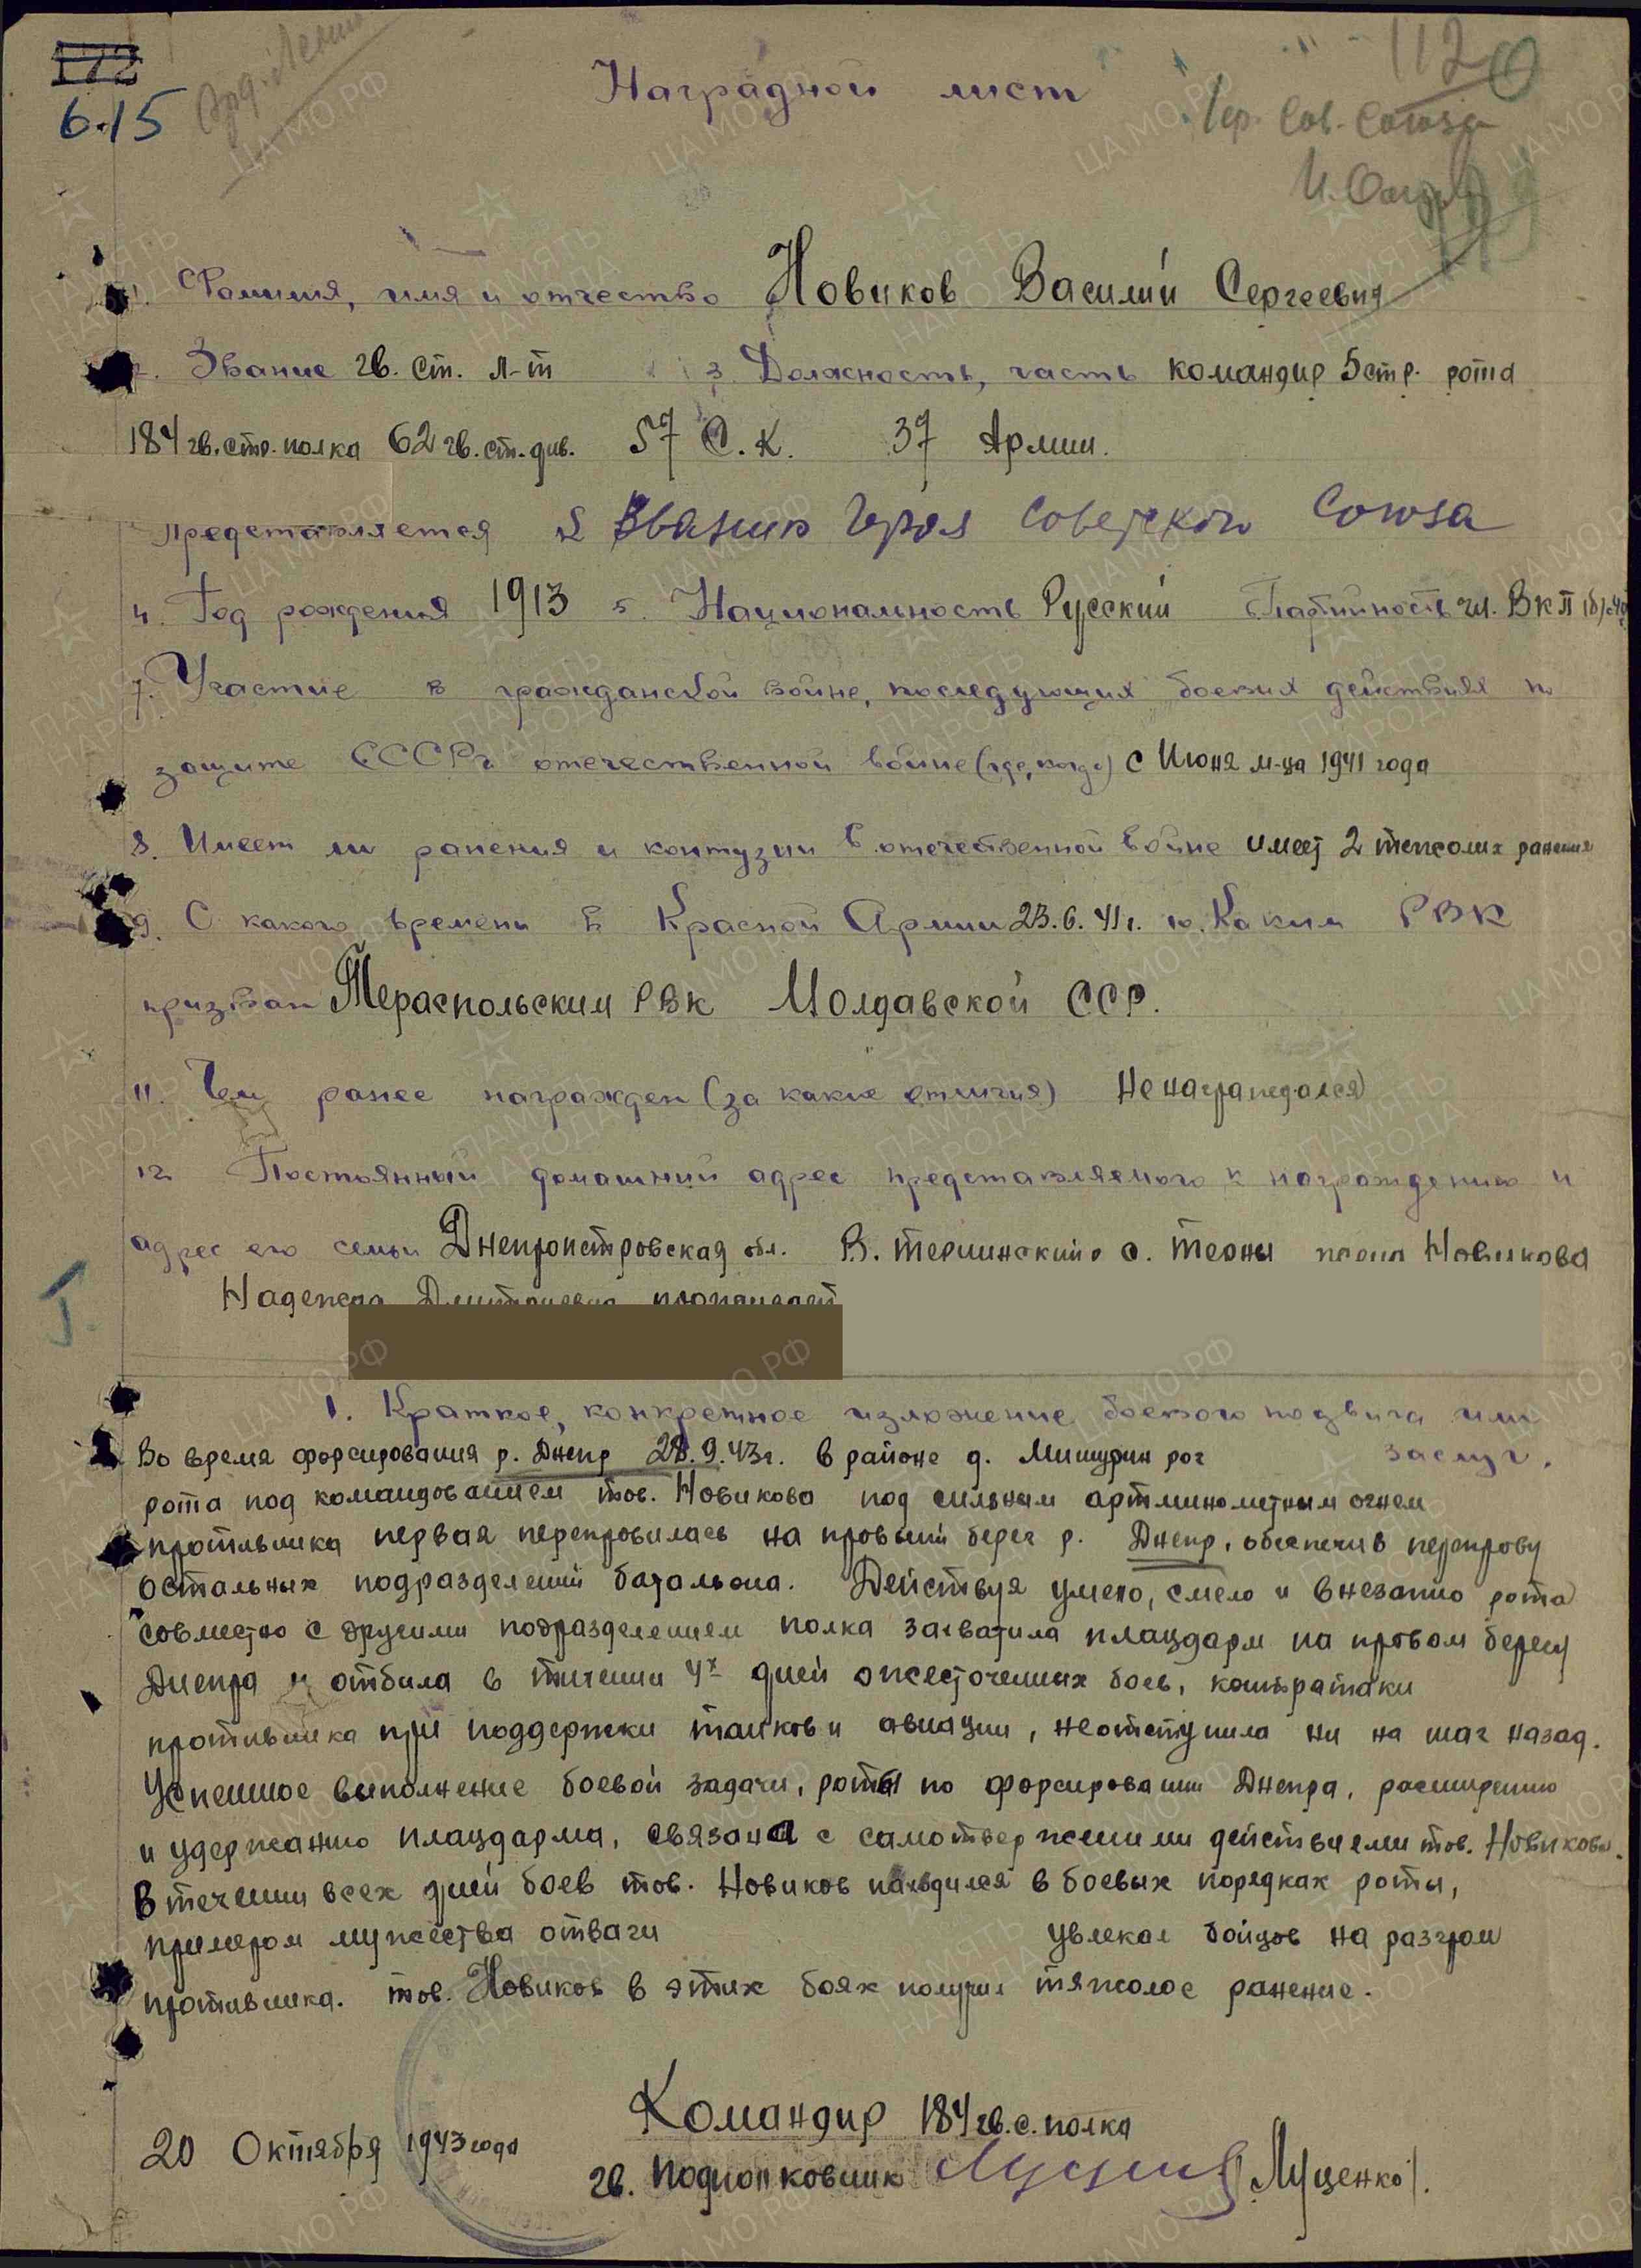 172
6.15
Орд. Ленина
Наградной лист
112
Гер. Сов. Союза
1. Фамилия, имя и отчество Новиков Василий Сергеевич
2. Звание гв. ст. л-т 3. Должность, часть командир 5 стр. рота
184 гв. стр. полка 62 гв. ст. див. 57 С.К. 37 Армии.
представляется к званию Героя Советского Союза
4. Год рождения 1913 5. Национальность Русский 6. Партийность чл. ВКП(б)
7. Участие в гражданской войне, последующих боевых действиях по
защите СССР и отечественной войне (где, когда) с Июня м-ца 1941 года
8. Имеет ли ранения и контузии в отечественной войне имеет 2 тежолих ранения
9. С какого времени в Красной Армии 23.6.41г. 10. Каким РВК
призван Тераспольским РВК Молдавской ССР.
11. Чем ранее награжден (за какие отличия) не награждался
12 Постоянный домашний адрес представляемого к награждению и
адрес его семьи Днепропетровская обл. с. Терны жена Новикова
Надежда Дмитриевна проживает
I.
1. Краткое, конкретное изложение боевого подвига или
заслуг.
Во время форсирования р. Днепр 28.9.43г. в районе д. Мишурин рог
рота под командованием тов. Новикова под сильным артминометным огнем
противника первая переправилась на правый берег р. Днепр, обеспечив переправу
остальных подразделений батальона. Действуя умело, смело и внезапно рота
совместно с другими подразделением полка захватила плацдарм на правом берегу
Днепра и отбила в течении 4х дней ожесточенных боев, контратаки
противника при поддержки танков и авиации, неотступила ни на шаг назад.
Успешное выполнение боевой задачи, роты по форсировании Днепра, расширению
и удержанию плацдарма, связана с самоотверженими действиеми тов. Новикова.
В течении всех дней боев тов. Новиков находился в боевых порядках роты,
примером мужества отваги увлекал бойцов на разгром
противника. тов. Новиков в этих боях получил тяжолое ранение.
Командир 184 гв. с. полка
20 Октября 1943 года
гв. Подполковник /Луценко/.
ПАМЯТЬ НАРОДА
ЦА МО.РФ